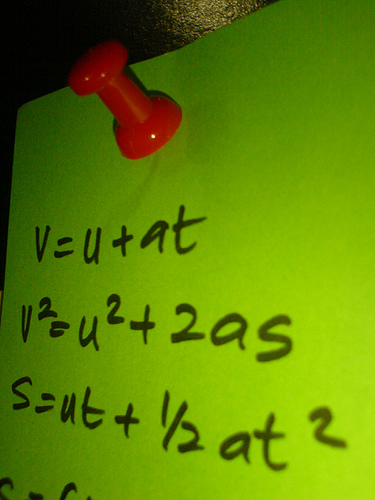 v=u+at
v²=u²+2as
s=ut+½at²